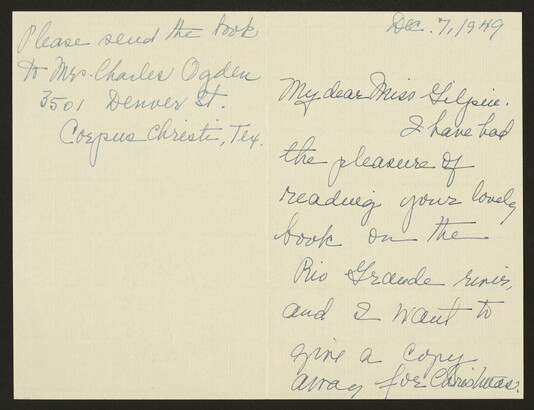 Please send the book
to Mrs. Charles Ogden
3501 Denver St.
Corpus Christi, Tex.
Dec. 7, 1949
My dear Miss Gilpin.
I have had
the pleasure of
reading your lovely
book on the
Rio Grande river,
and I want to
give a copy
away for Christmas.